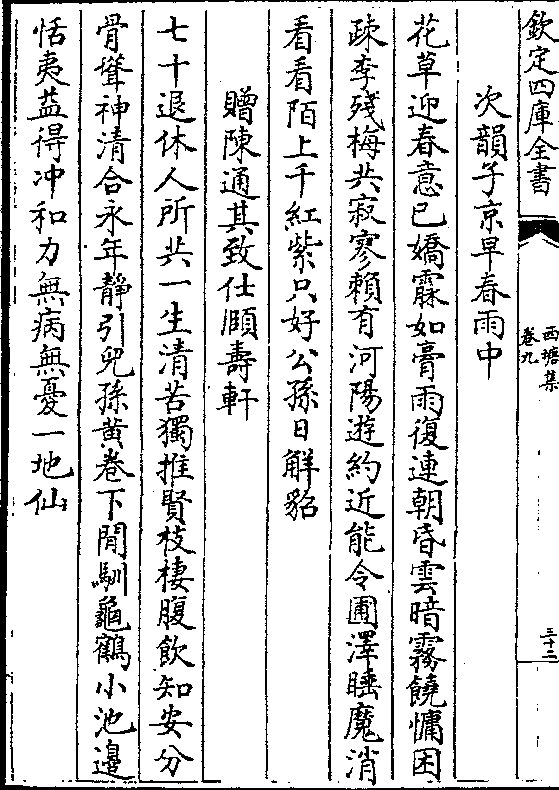 欽定四庫全書
西塘集
卷九
三十二
次韻子京早春雨中
花草迎春意已嬌霡如膏雨復連朝昏雲暗霧饒慵困
疎李殘梅共寂寥賴有河陽遊約近能令圃澤睡魔消
看看陌上千紅紫只好公孫日解貂
贈陳通其致仕頤壽軒
七十退休人所共一生清苦獨推賢枝棲腹飲知安分
骨聳神清合永年靜引兒孫黃卷下閒馴龜鶴小池邊
恬夷益得冲和力無病無憂一地仙